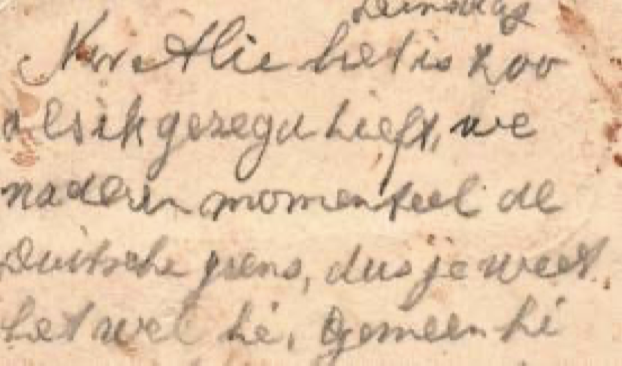 Dinsdag
Nou Alie het is zoo
als ik gezegd heeft, we
naderen momenteel de
Duitsche grens, dus je weet
het wel hè, gemeen hè